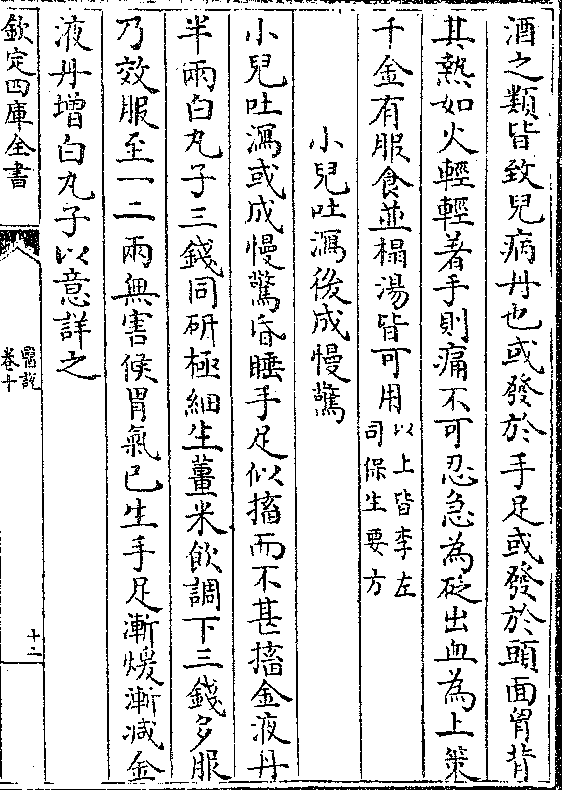 酒之類皆致兒病丹也或發於手足或發於頭面胷背
其熱如火輕輕著手則痛不可忍急為砭出血為上策
千金有服食並榻湯皆可用以上皆李左
司保生要方
小兒吐瀉後成慢驚
小兒吐瀉或成慢驚昏睡手足似搐而不甚搐金液丹
半兩白丸子三錢同研極細生薑米飲調下三錢多服
乃效服至一二兩無害候胃氣已生手足漸煖漸减金
液丹增白丸子以意詳之
欽定四庫全書
醫説
卷十
十二